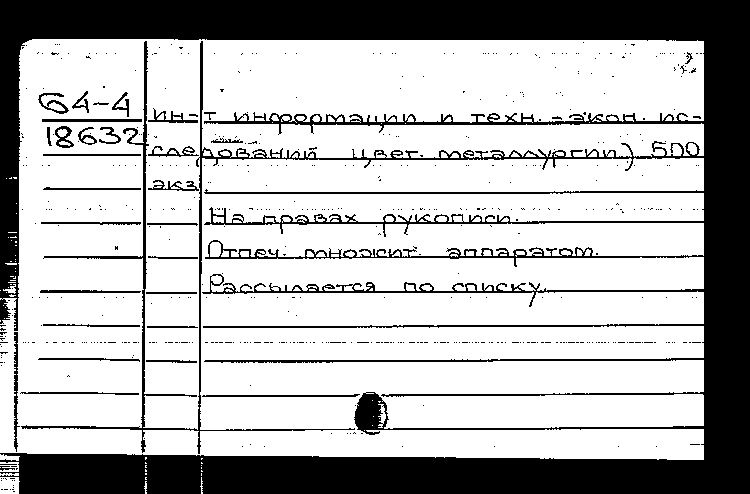 64-4
18632
ин-т информации и техн.-экон. ис-
следований цвет. металлургии) 500
экз.
На правах рукописи.
Отпеч. множит. аппаратом.
Рассылается по списку.